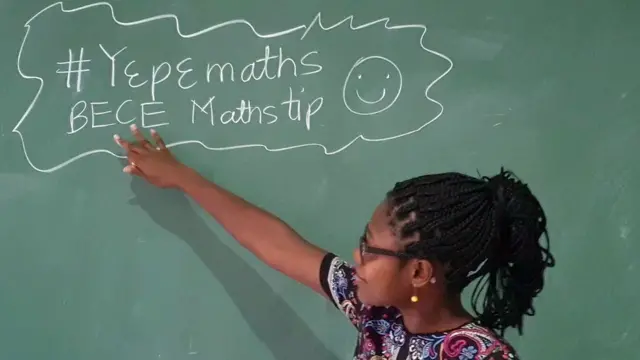 #Yɛpɛmaths
BECE Mathstip